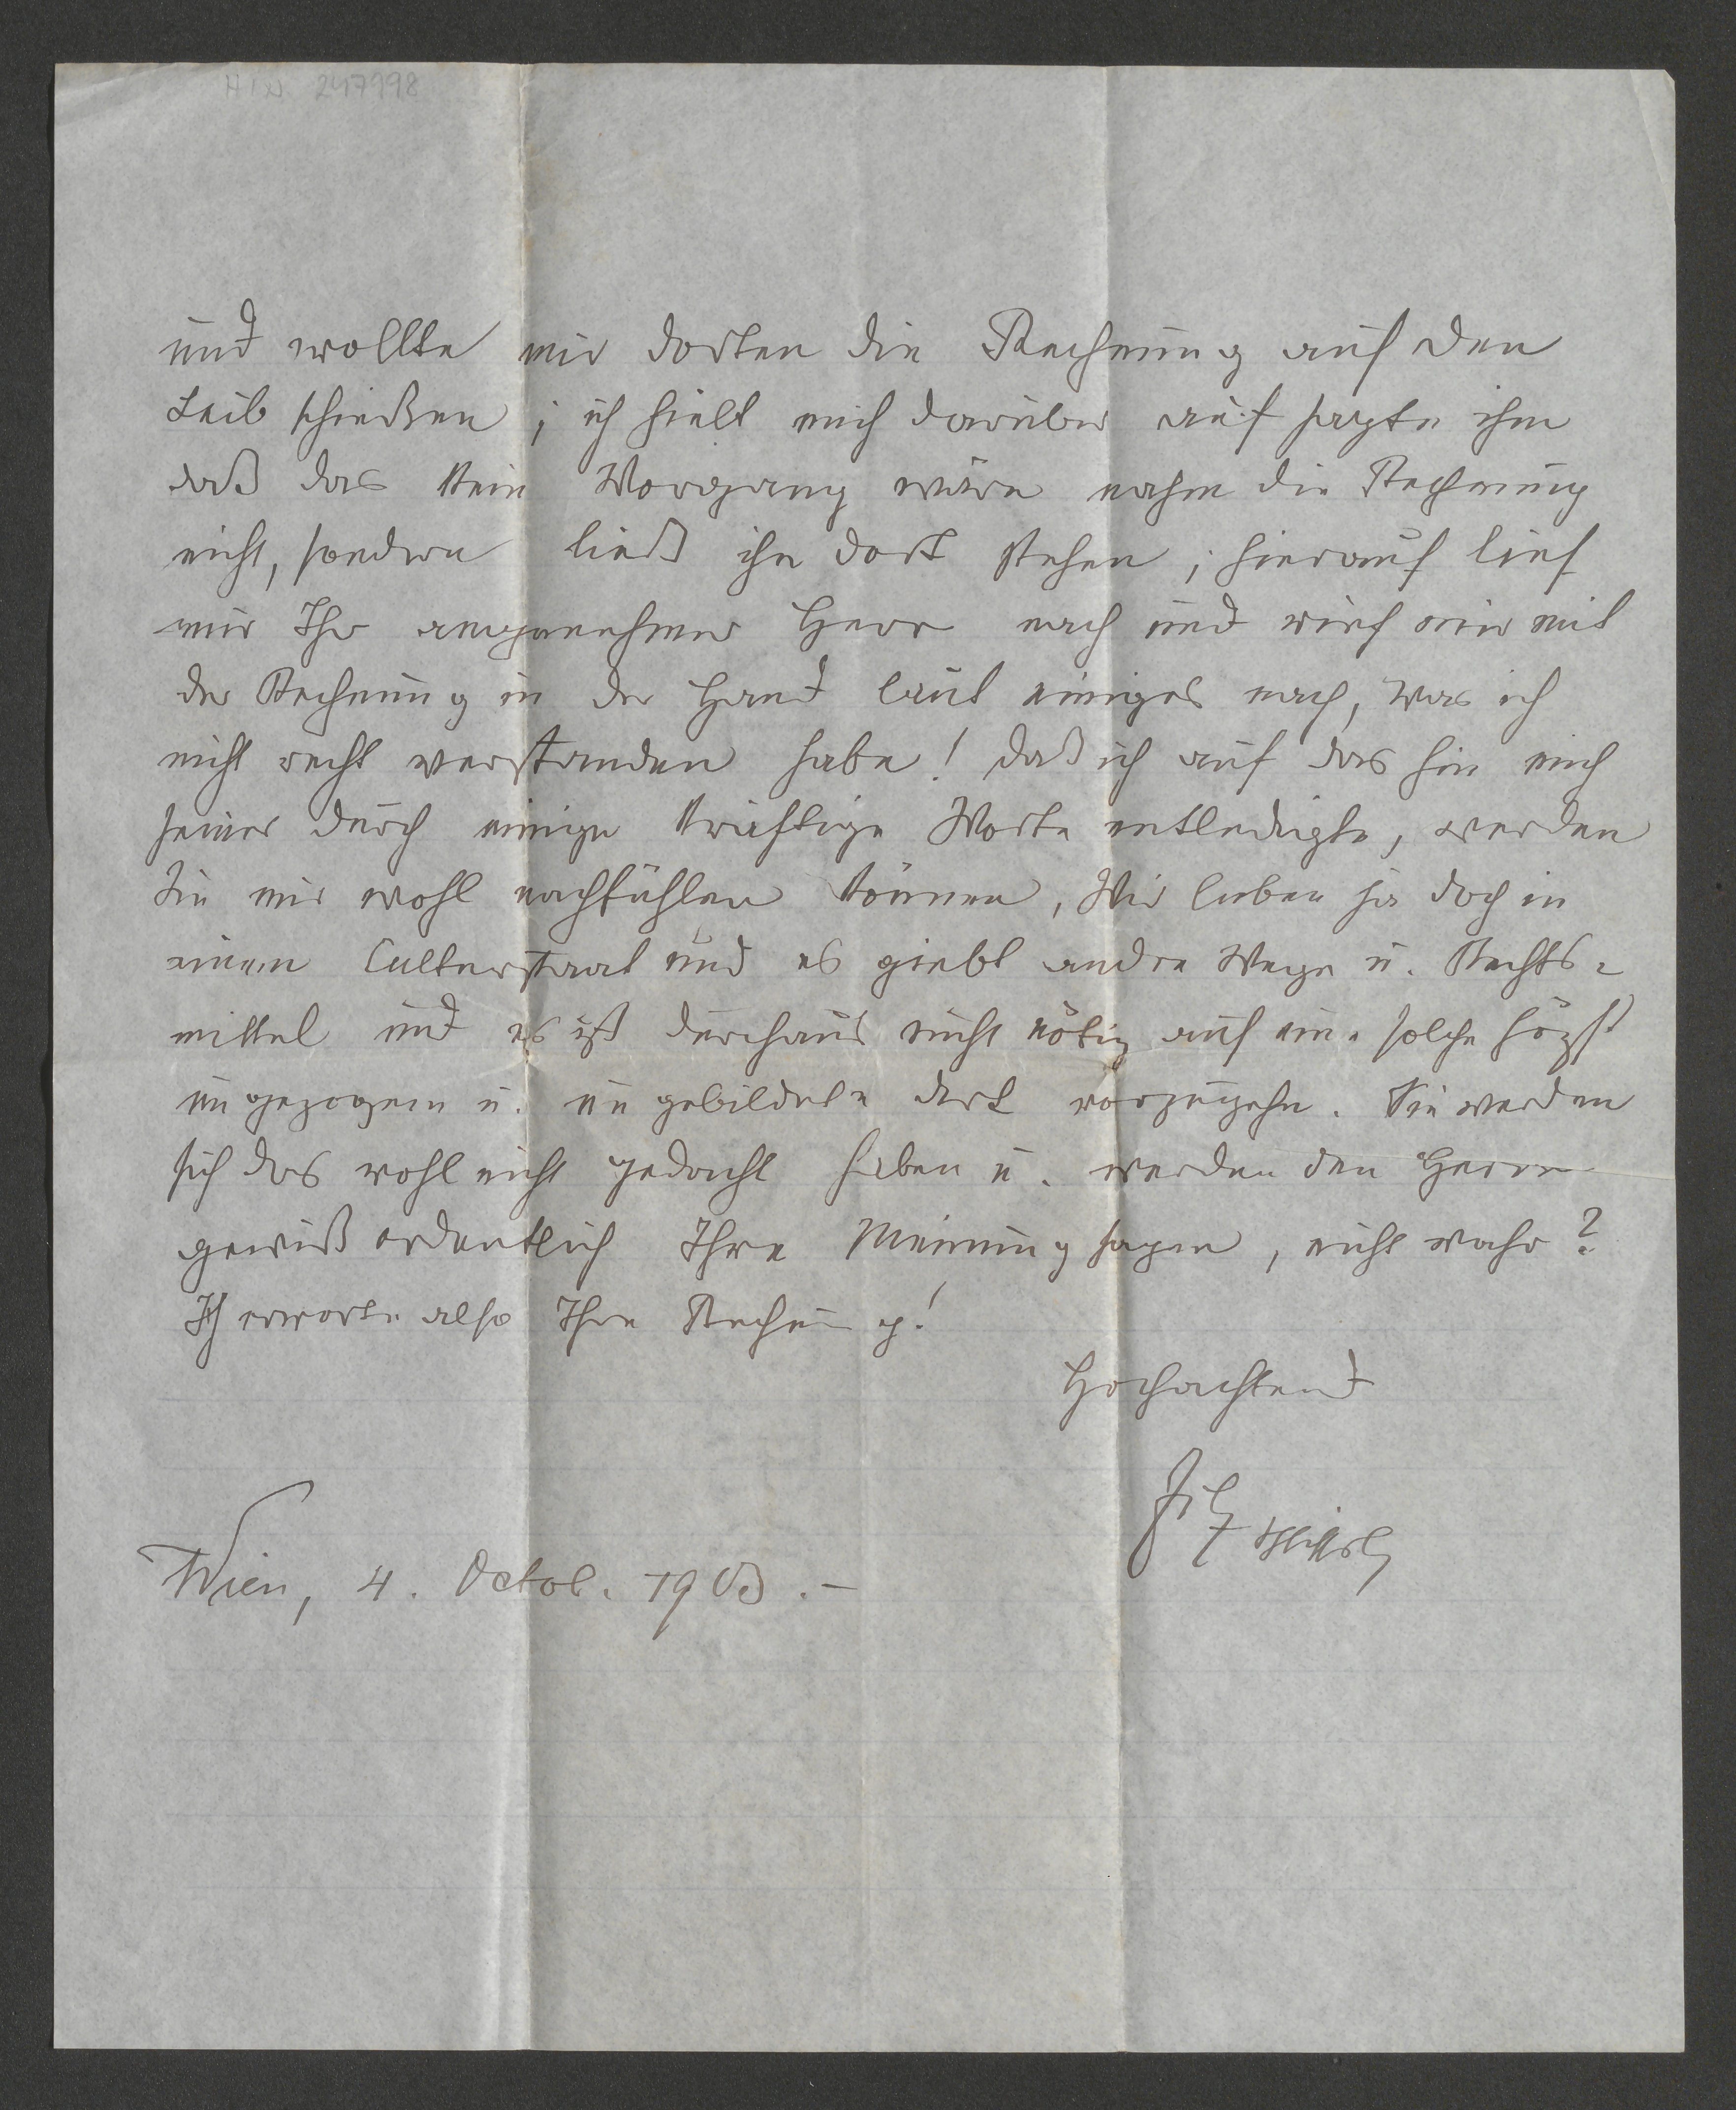 HIN 247998
und wollte mir dorten die Rechnung auf den
Leib schießen; ich hielt mich darüber auf sagte ihm
daß das kein Vorgang wäre nahm die Rechnung
nicht, sondern ließ ihn dort stehen; hierauf lief
mir Ihr angenehmer Herr nach und rief mir mit
der Rechnung in der Hand laut einiges nach, was ich
nicht recht verstanden habe! Daß ich auf das hin mich
seiner durch einige kräftige Worte entledigte, werden
Sie mir wohl nachfühlen können, Wir leben ja doch in
einem Culturstaat und es giebt andre Wege u. Rechts-
mittel und es ist durchaus nicht nötig auf eine solche höchst
ungezogene u. ungebildete Art vorzugehn. Sie werden
sich das wohl nicht gedacht haben u. werden den Herrn
gewiß ordentlich Ihre Meinung sagen, nicht wahr?
Ich erwarte also Ihre Rechnung!
Hochachtend
Wien, 4. Octob. 1903.-